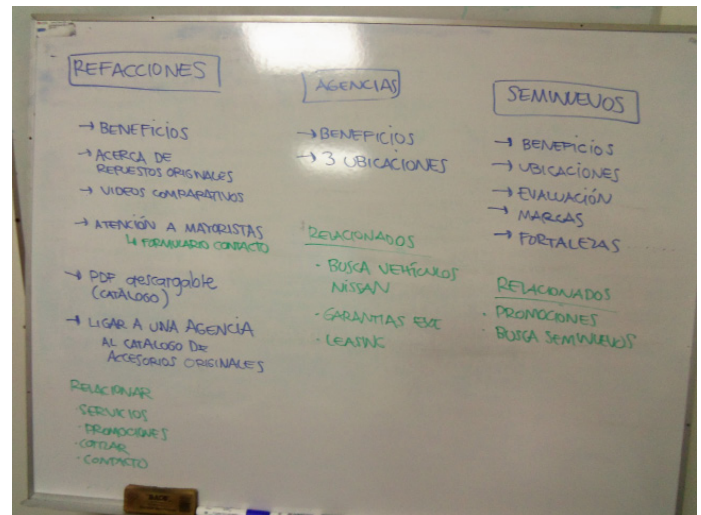 REFACCIONES
→ BENEFICIOS
→ ACERCA DE
REPUESTOS ORIGINALES
→ VIDEOS COMPARATIVOS
→ ATENCIÓN A MAYORISTAS
↳ FORMULARIO CONTACTO
→ PDF descargable
(CATÁLOGO)
→ LIGAR A UNA AGENCIA
AL CATÁLOGO DE
ACCESORIOS ORIGINALES
RELACIONAR
· SERVICIOS
· PROMOCIONES
· COTIZAR
· CONTACTO
AGENCIAS
→ BENEFICIOS
→ 3 UBICACIONES
RELACIONADOS
· BUSCA VEHÍCULOS
NISSAN
· GARANTIAS
· LEASING
SEMINUEVOS
→ BENEFICIOS
→ UBICACIONES
→ EVALUACIÓN
→ MARCAS
→ FORTALEZAS
RELACIONADOS
· PROMOCIONES
· BUSCA SEMINUEVOS